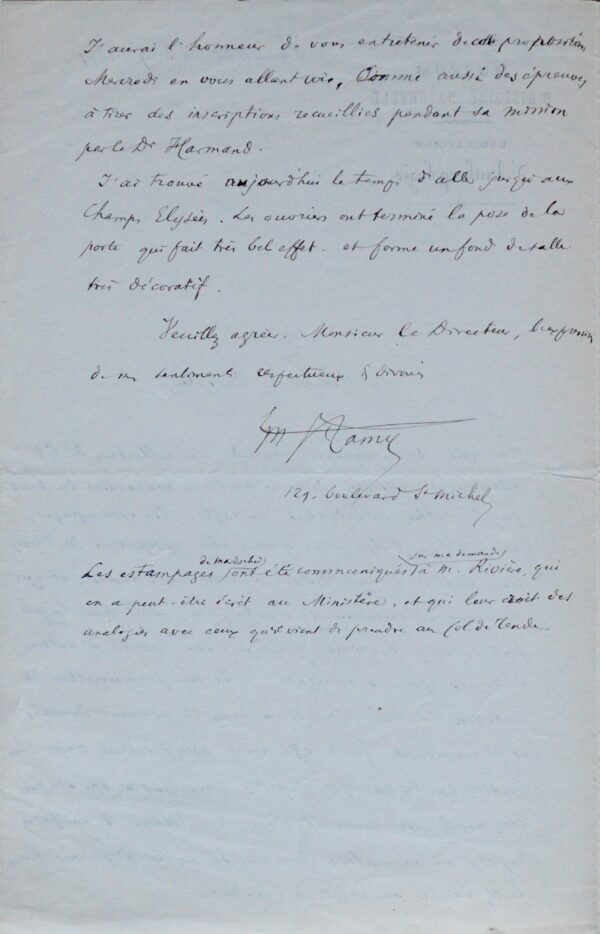 J'aurai l'honneur de vous entretenir de cette proposition
Mercredi en vous allant voir, Comme aussi des épreuves
à tirer des inscriptions recueillies pendant sa mission
par le Dr Harmand.
J'ai trouvé aujourd'hui le temps d'aller jusqu'aux
Champs Elysées. Les ouvriers ont terminé la pose de la
porte qui fait très bel effet. et forme un fond de salle
très décoratif.
Veuillez agréer, Monsieur le Directeur, l'expression
de mes sentiments respectueux & dévoués
Hamy
129. boulevard St Michel
de Mardochée sur ma demande
Les estampages ont été communiqués à M. Rivière, qui
en a peut-être écrit au Ministère, et qui leur croit des
analogies avec ceux qu'il vient de prendre au Col de Tende